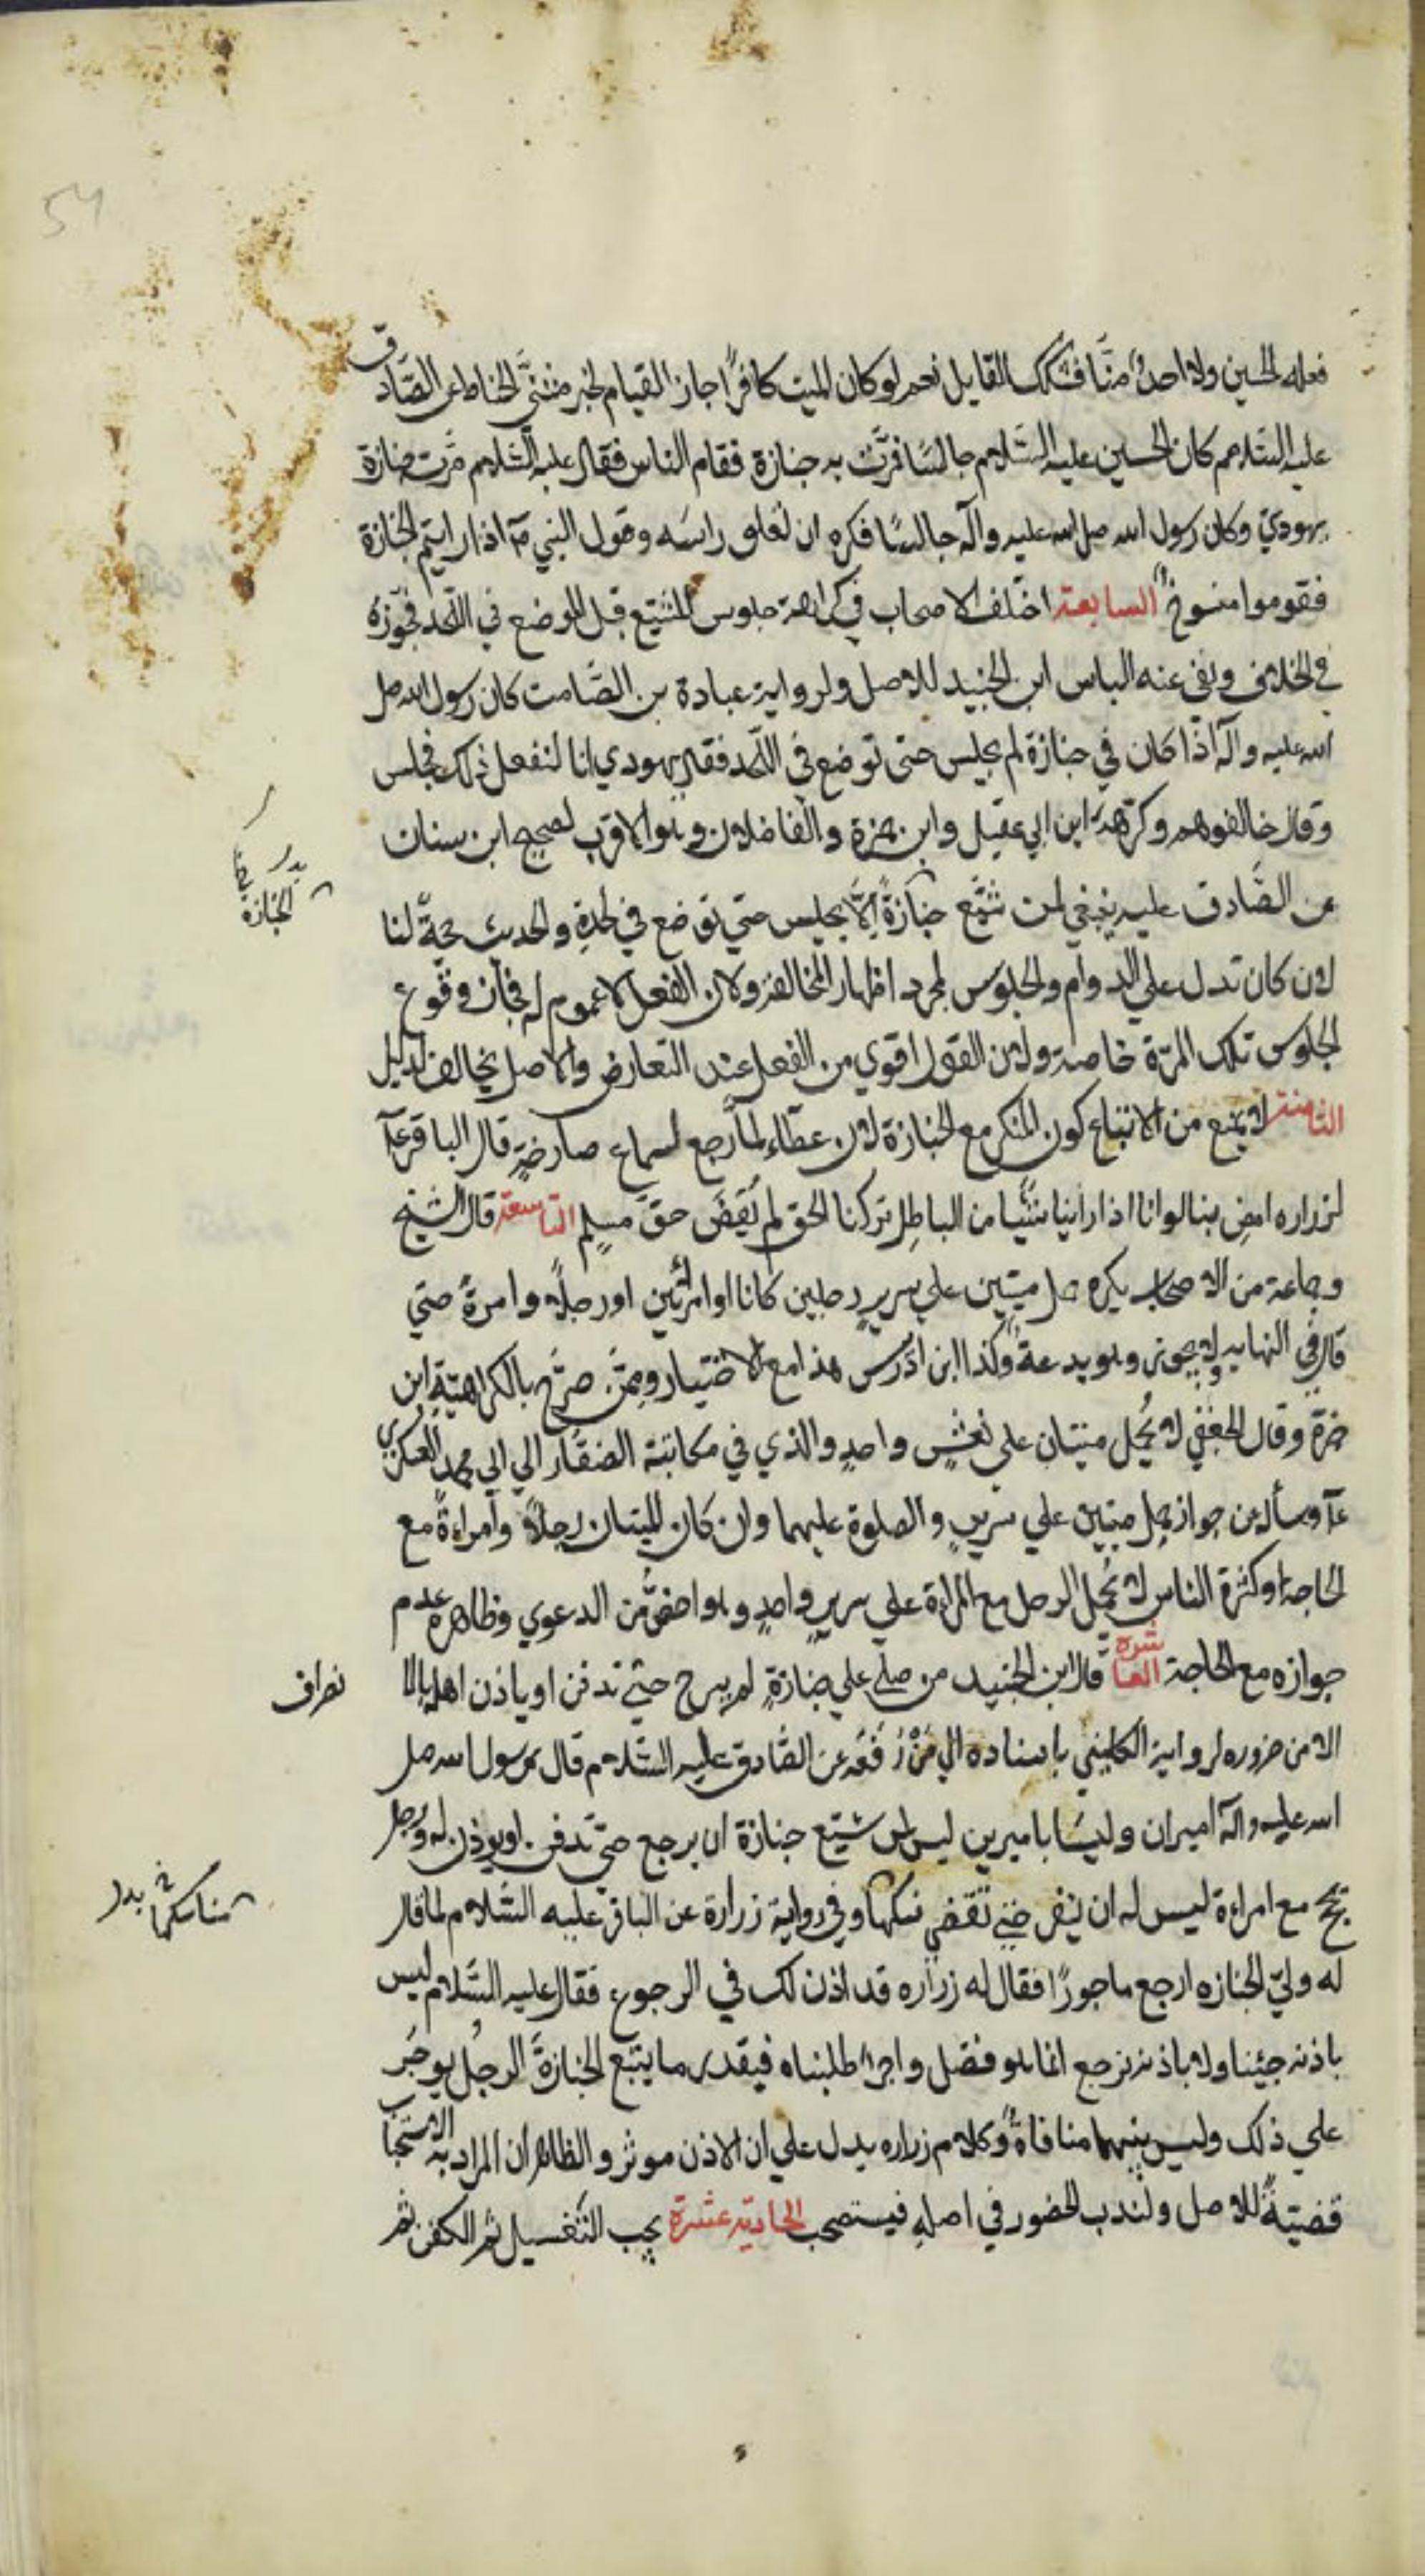 فعله الحسين ولا احد منّا فشكك القايل نعم لو كان الميت كافرًا جاز القيام لخبر مثنّى الحناط عن الصّادق
عليه السّلام كان الحسين عليه السّلام جالسًا فمرّت به جنازة فقام الناس فقال عليه السّلام مرّت جنازة
يهوديّ وكان رسول الله صلى الله عليه وآله جالسًا فكره ان تعلو راسه وقول النبي ص اذا رايتم الجنازة
فقوموا منسوخ السابعة اختلف الاصحاب في كراهة جلوس المشيّع قبل الوضع في اللحد فجوّزه
في الخلاف ونفى عنه الباس ابن الجنيد للاصل ولرواية عبادة بن الصّامت كان رسول الله صلى
الله عليه وآله اذا كان في جنازة لم يجلس حتى توضع في اللّحد فقال يهودي انا لنفعل ذلك فجلس
وقال خالفوهم وكرهه ابن ابي عقيل وابن حمزة والفاضلان وهو الاقرب لصحيح ابن سنان
عن الصّادق عليه ينبغي لمن شيّع جنازةً الّا يجلس حتي توضع في لحده والحديث حجّة لنا
لان كان تدل علي الدوام والجلوس لمجرد اظهار المخالفة ولان الفعل لا عموم له فجاز وقوع
الجلوس تلك المرّة خاصة ولان القول اقوي من الفعل عند التعارض والاصل يخالف لدليل
الثامنة لا يمنع من الاتباع كون المنكر مع الجنازة لان عطاء لمّا رجع لسماع صارخةٍ قال الباقر ع
لزراره امض بنا لو انا اذا راينا شيًا من الباطل تركنا الحق لم نقض حقّ مسلم التاسعة قال الشيخ
وجماعة من الاصحاب يكره حمل ميتين علي سرير رجلين كانا او امرأتين او رجلًا وامرةً حتي
قال في النهاية لا يجوز وهو بدعة وكذا ابن ادريس هذا مع الاختيار وممّن صرّح بالكراهية ابن
حمزة وقال الجعفي لا يُحمل ميتان علي نعشٍ واحدٍ والذي في مكاتبة الصفار الي ابي محمد العسكري
ع وسأله عن جواز حمل ميتين علي سرير والصلوة عليهما وان كان الميتان رجلًا وامراةً مع
الحاجة او كثرة الناس لا يُحمل الرجل مع المراة علي سرير واحدٍ وهو اخصّ من الدعوي وظاهره عدم
جوازه مع الحاجة العاشرة قال ابن الجنيد من صلّى علي جنازةٍ لم يبرح حتي تدفن او ياذن اهله بالا
نصراف
الا من ضروره لرواية الكليني باسناده الي مَنْ رَفَعَه عن الصّادق عليه السّلام قال رسول الله صلى
الله عليه وآله اميران وليسا باميرين ليس لمن شيّع جنازة ان يرجع حتي تدفن او يوذن له ورجل
يحج مع امراءة ليس له ان ينفر حتي تقضي نسكها وفي رواية زرارة عن الباقر عليه السّلام لما قال
مناسكها
له وليّ الجنازه ارجع ماجورًا فقال له زراره قد اذن لك في الرجوع فقال عليه السّلام ليس
باذنه جيئنا ولا باذنه نرجع انما هو فضل واجر طلبناه فبقدر ما يتبع الجنازةَ الرجلُ يوجَر
علي ذلك وليس بينهما منافاةً وكلام زراره يدل علي ان الاذن موثر والظاهر ان المراد به الاستحبا
قضيّةً للاصل ولندب الحضور في اصله فيستصحب الحاديّة عشرة يجب التغسيل ثم الكفن ثم
الجنازة
54